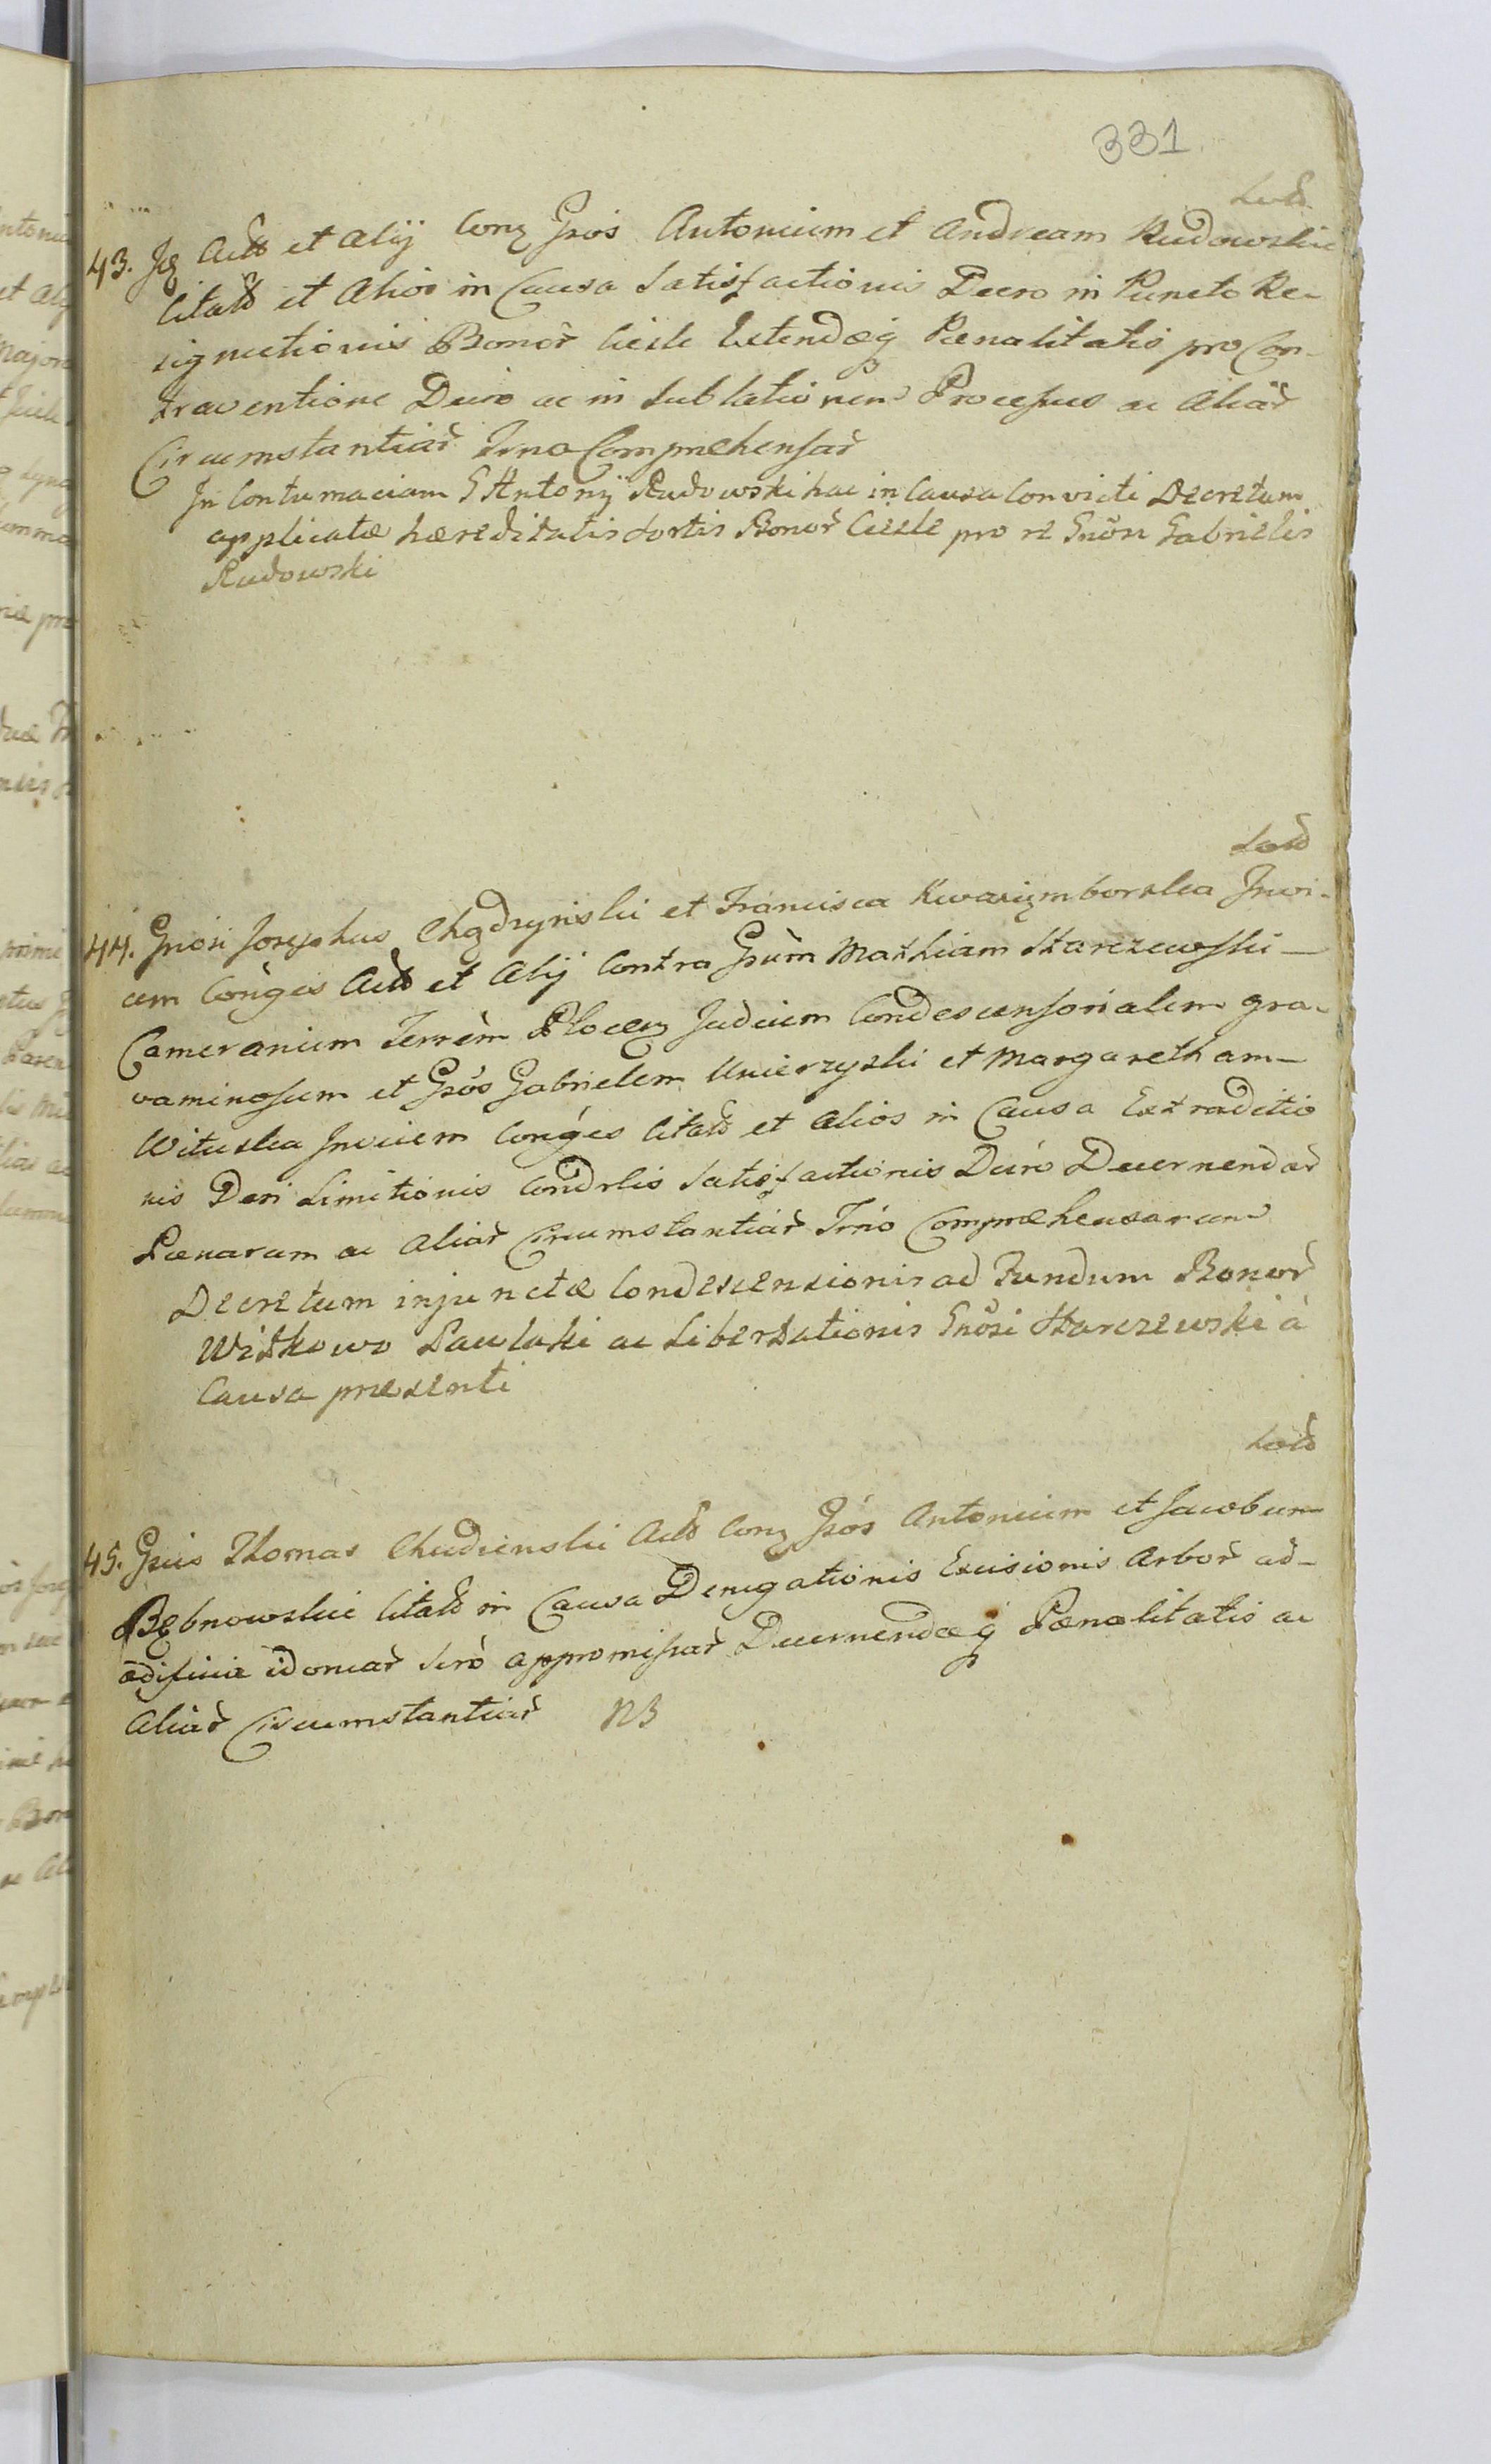 331
43. Jq Actt et Alij Conq Gsos Antonium et Andream Rudowskie
Citatt et Alios in Causa Satisfactionis Decro in Puncto Re-
signationis Bonor̃ Ciesle Extendæq Pœnalitatis pro Con-
traventione Decro ac in Sublationem Processus ac Aliar̃
Circumstantiar̃ Trno Comprehensar̃
In Contumaciam G Antonij Rudowski hac in Causa Convicti Decretum
applicatæ hæreditatis Sortis Bonor̃ Ciesle pro re Gnosi Gabrielis
Rudowski
44. Gnosi Josephus Chądzyński et Francisca Invi-
cem Conġes Actt et Alij Contra Gsum Mathiam Starczewski
Cameranium Terrėm Plocen Judicem Condescensorialem gra-
vaminosum et Gsos Gabrielem Unierzyski et Margaretham
Wituska Invicem Conġes Citatt et Alios in Causa Extraditio
nis Dcri Limitionis Condrlis Satisfactionis Dcro Decernendar̃
Pœnarum ac Aliar̃ Circumstantiar̃ Trno Comprehensarum
Decretum injunctæ Condescensionis ad Fundum Bonor̃
Witkowo Pawlaki ac Libertationis Gnosi Starczewski à
Causa præsenti
45. Gsus Thomas Chudzinski Actt Conq Gsos Antonium et Jacobum
Bębnowskie Citatt in Causa Denegationis Excisionis Arbor̃ ad
ædificia idonear̃ Scro appromissar̃ Decernendæq Pœnalitatis ac
Aliar̃ Circumstantiar̃ NB